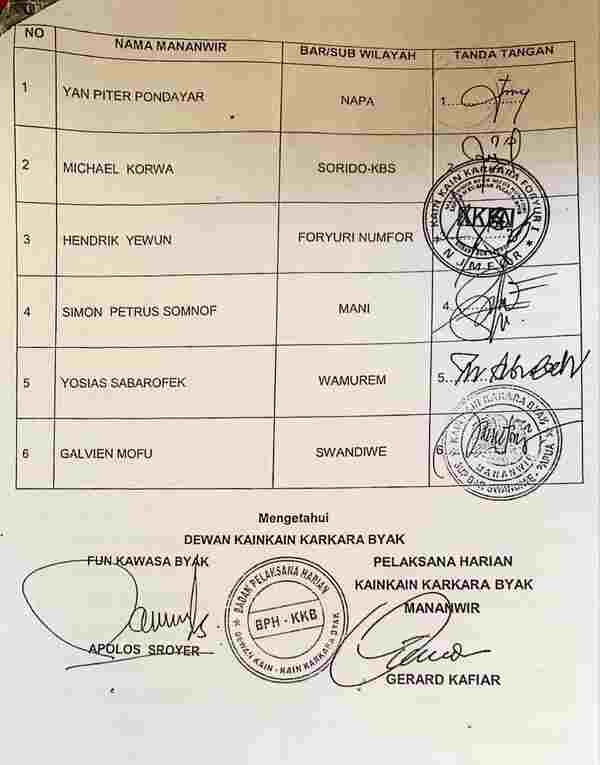 NO NAMA MANANWIR BAR/SUB WILAYAH TANDA TANGAN
1 YAN PITER PONDAYAR NAPA 1
2 MICHAEL KORWA SORIDO-KBS 2
3 HENDRIK YEWUN FORYURI NUMFOR
KAIN KAIN KARKARA FORYUR I
KKKN
4 SIMON PETRUS SOMNOF MANI 4.
5 YOSIAS SABAROFEK WAMUREM 5
6 GALVIEN MOFU SWANDIWE 6
KAIN KAIN KARKARA BYAK
MANANWIR
Mengetahui
DEWAN KAINKAIN KARKARA BYAK
FUN KAWASA BYAK PELAKSANA HARIAN
KAINKAIN KARKARA BYAK
MANANWIR
BADAN PELAKSANA HARIAN
BPH - KKB
DEWAN KAIN - KAIN KARKARA BYAK
APOLOS SROYER
GERARD KAFIAR